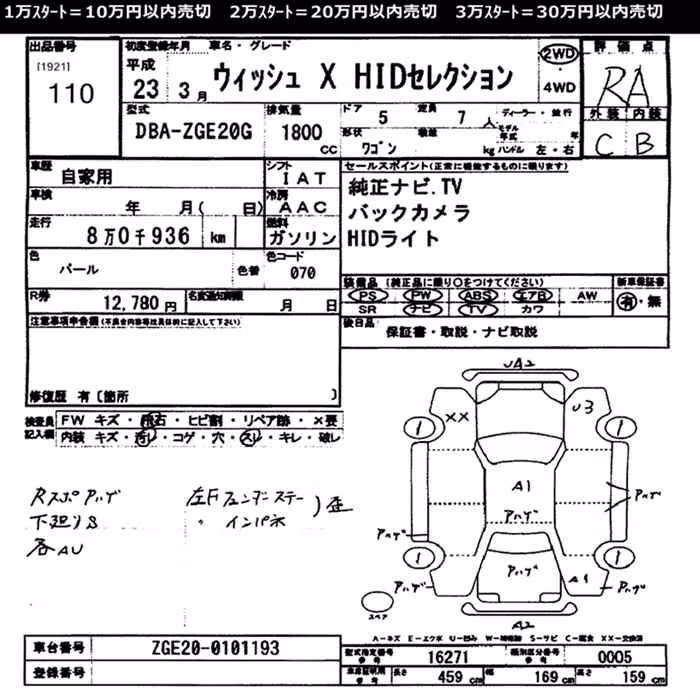 1万ｽﾀｰﾄ＝10万円以内売切　2万ｽﾀｰﾄ＝20万円以内売切　3万ｽﾀｰﾄ＝30万円以内売切
出品番号
[1921]
110
初度登録年月
平成
23 3月
車名・グレード
ウィッシュ X HIDセレクション
2WD
・
4WD
評価点
RA
外装 内装
C B
型式
DBA-ZGE20G
排気量
1800 cc
ドア 5
定員 7 人
ディーラー・並行
モデル年式 年
形状 ワゴン
積載 kg
ハンドル 左・右
車歴 自家用
シフト IAT
車検 年 月( 日)
冷房 AAC
走行 8万0千936 km
燃料 ガソリン
色 パール
色番
色コード 070
R券 12,780 円
名変通知期限 月 日
セールスポイント(正常に機能するものに限ります)
純正ナビ.TV
バックカメラ
HIDライト
装備品 (純正品に限り○をつけてください)
PS PW ABS エアB AW
SR ナビ TV カワ
新車保証書
有・無
後日品 保証書・取説・ナビ取説
注意事項申告欄(不具合内容等は具体的に記入して下さい)
修復歴 有〔箇所 〕
検査員記入欄
FW キズ・飛石・ヒビ割・リペア跡・×要
内装 キズ・汚レ・コゲ・穴・スレ・キレ・破レ
Rスポ アハゲ
下廻りS
各AU
左Fフェンダーステー
〃 インパネ
)歪
UA2
XX
U3
1
1
A1
アハゲ
アハゲ
アハゲ
1
1
アハゲ
アハゲ
A1
アハゲ
スペア
A2
A－キズ E－エクボ U－凹ミ W－補修跡 S－サビ C－腐食 XX－交換済
車台番号 ZGE20-0101193
登録番号
型式指定番号 参考 16271
類別区分番号 参考 0005
車庫証明用 参考
長さ 459 cm
幅 169 cm
高さ 159 cm